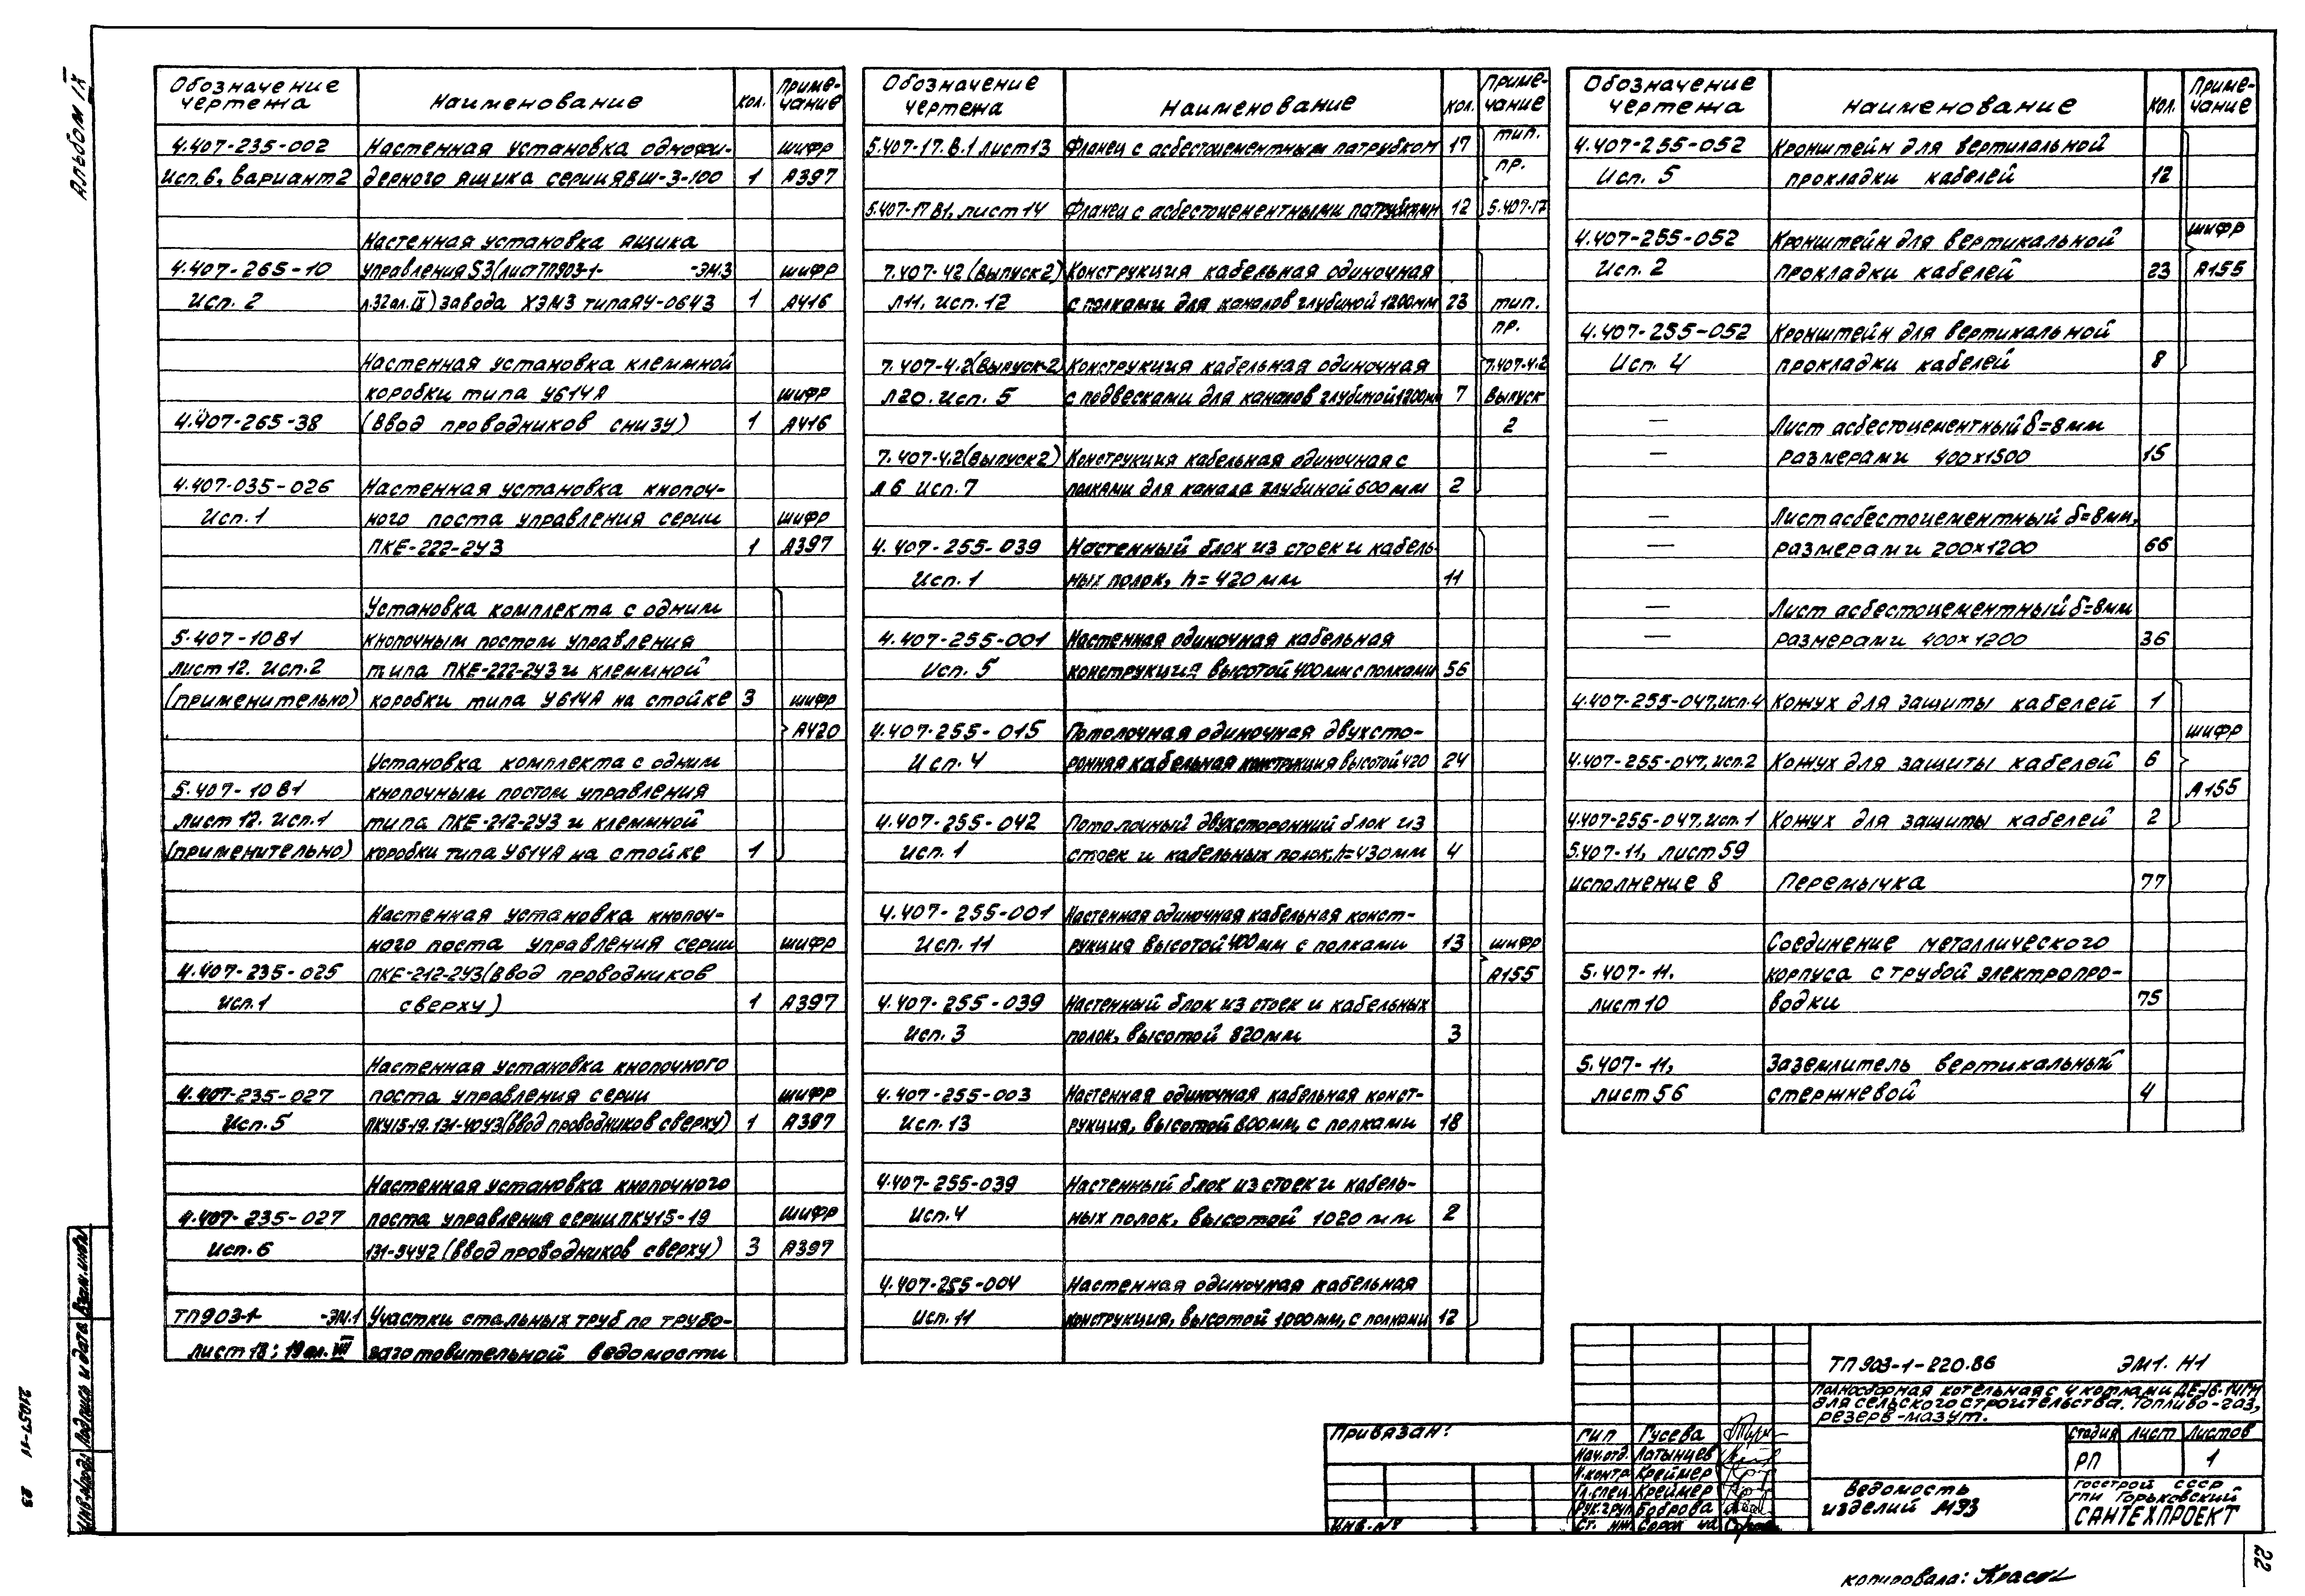 Альбом IX
Обозначение чертежа Наименование кол. Приме-чание
4.407-235-002 Настенная установка однофи- шифр
Исп.6, вариант 2 дерного ящика серии ЯВШ-3-100 1 А397
Настенная установка ящика
4.407-265-10 управления S3 (лист ТП903-1- -ЭМ.3 шифр
Исп. 2 л.32 ал. IX) завода ХЭМЗ типа ЯУ-0643 1 А416
Настенная установка клеммной
коробки типа У614А шифр
4.407-265-38 (Ввод проводников снизу) 1 А416
4.407-035-026 Настенная установка кнопоч-
Исп. 1 ного поста управления серии шифр
ПКЕ-222-2У3 1 А397
Установка комплекта с одним
5.407-10В1 кнопочным постом управления
лист 12. Исп.2 типа ПКЕ-222-2У3 и клеммной
(применительно) коробки типа У614А на стойке 3 шифр
А420
Установка комплекта с одним
5.407-10В1 кнопочным постом управления
лист 12. исп.1 типа ПКЕ-212-2У3 и клеммной
(применительно) коробки типа У614А на стойке 1
Настенная установка кнопоч-
ного поста управления серии шифр
4.407-235-025 ПКЕ-212-2У3 (ввод проводников
исп.1 сверху) 1 А397
Настенная установка кнопочного
4.407-235-027 поста управления серии шифр
Исп. 5 ПКУ15-19.131-40У3 (ввод проводников сверху) 1 А397
Настенная установка кнопочного
4.407-235-027 поста управления серии ПКУ15-19 шифр
Исп. 6 131-54У2 (ввод проводников сверху) 3 А397
ТП903-1- -ЭМ.1 Участки стальных труб по трубо-
лист 18; 19 ал. VIII заготовительной ведомости
Обозначение чертежа Наименование кол. Приме-чание
5.407-17.В.1 лист 13 Фланец с асбестоцементным патрубком 17 тип.
пр.
5.407-17 В1, лист 14 Фланец с асбестоцементными патрубками 12 5.407-17
7.407-42 (Выпуск 2) Конструкция кабельная одиночная
Л11, исп. 12 с полками для каналов глубиной 1200мм 23 тип.
пр.
7.407-4.2 (Выпуск 2) Конструкция кабельная одиночная 7.407-4.2
Л20. исп. 5 с подвесками для каналов глубиной 1200мм 7 Выпуск
2
7.407-4.2 (Выпуск 2) Конструкция кабельная одиночная с
Л 6 Исп. 7 полками для канала глубиной 600мм 2
4.407-255-039 Настенный блок из стоек и кабель-
Исп. 1 ных полок, h=420мм 11
4.407-255-001 Настенная одиночная кабельная
Исп. 5 конструкция высотой 400мм с полками 56
4.407-255-015 Потолочная одиночная двухсто-
Исп. 4 ронняя кабельная конструкция высотой 420 24
4.407-255-042 Потолочный двухсторонний блок из
Исп. 1 стоек и кабельных полок, h=430мм 4
4.407-255-001 Настенная одиночная кабельная конст-
Исп. 11 рукция высотой 400мм с полками 13 шифр
А155
4.407-255-039 Настенный блок из стоек и кабельных
Исп. 3 полок, высотой 820мм 3
4.407-255-003 Настенная одиночная кабельная конст-
Исп. 13 рукция, высотой 800мм, с полками 18
4.407-255-039 Настенный блок из стоек и кабель-
Исп. 4 ных полок, высотой 1020мм 2
4.407-255-004 Настенная одиночная кабельная
Исп. 11 конструкция, высотой 1000мм, с полками 12
Обозначение чертежа Наименование кол. Приме-чание
4.407-255-052 Кронштейн для вертикальной
Исп. 5 прокладки кабелей 12
шифр
4.407-255-052 Кронштейн для вертикальной
Исп. 2 прокладки кабелей 23 А155
4.407-255-052 Кронштейн для вертикальной
Исп. 4 прокладки кабелей 8
— Лист асбестоцементный δ=8мм
— размерами 400х1500 15
— Лист асбестоцементный δ=8мм,
— размерами 200х1200 66
— Лист асбестоцементный δ=8мм
— размерами 400х1200 36
4.407-255-047, исп. 4 Кожух для защиты кабелей 1
шифр
4.407-255-047, исп. 2 Кожух для защиты кабелей 6
А155
4.407-255-047, исп. 1 Кожух для защиты кабелей 2
5.407-11, лист 59
исполнение 8 Перемычка 77
Соединение металлического
5.407-11. корпуса с трубой электропро-
лист 10 водки 75
5.407-11, Заземлитель вертикальный
лист 56 стержневой 4
ТП 903-1-220.86 ЭМ1. Н1
Полносборная котельная с 4 котлами ДЕ-16-14ГМ
для сельского строительства. Топливо-газ,
резерв-мазут.
Привязан:
Инв.№
гип Гусева
Нач.отд. Латынцев
Н.контр. Креймер
Гл.спец. Креймер
Рук.груп. Боброва
Ст. инж.
Стадия Лист Листов
РП 1
Ведомость
изделий МЭЗ
Госстрой СССР
ГПИ Горьковский
САНТЕХПРОЕКТ
Инв.№подл. Подпись и дата Взам.инв.№
21057-11 23
22
копировала: